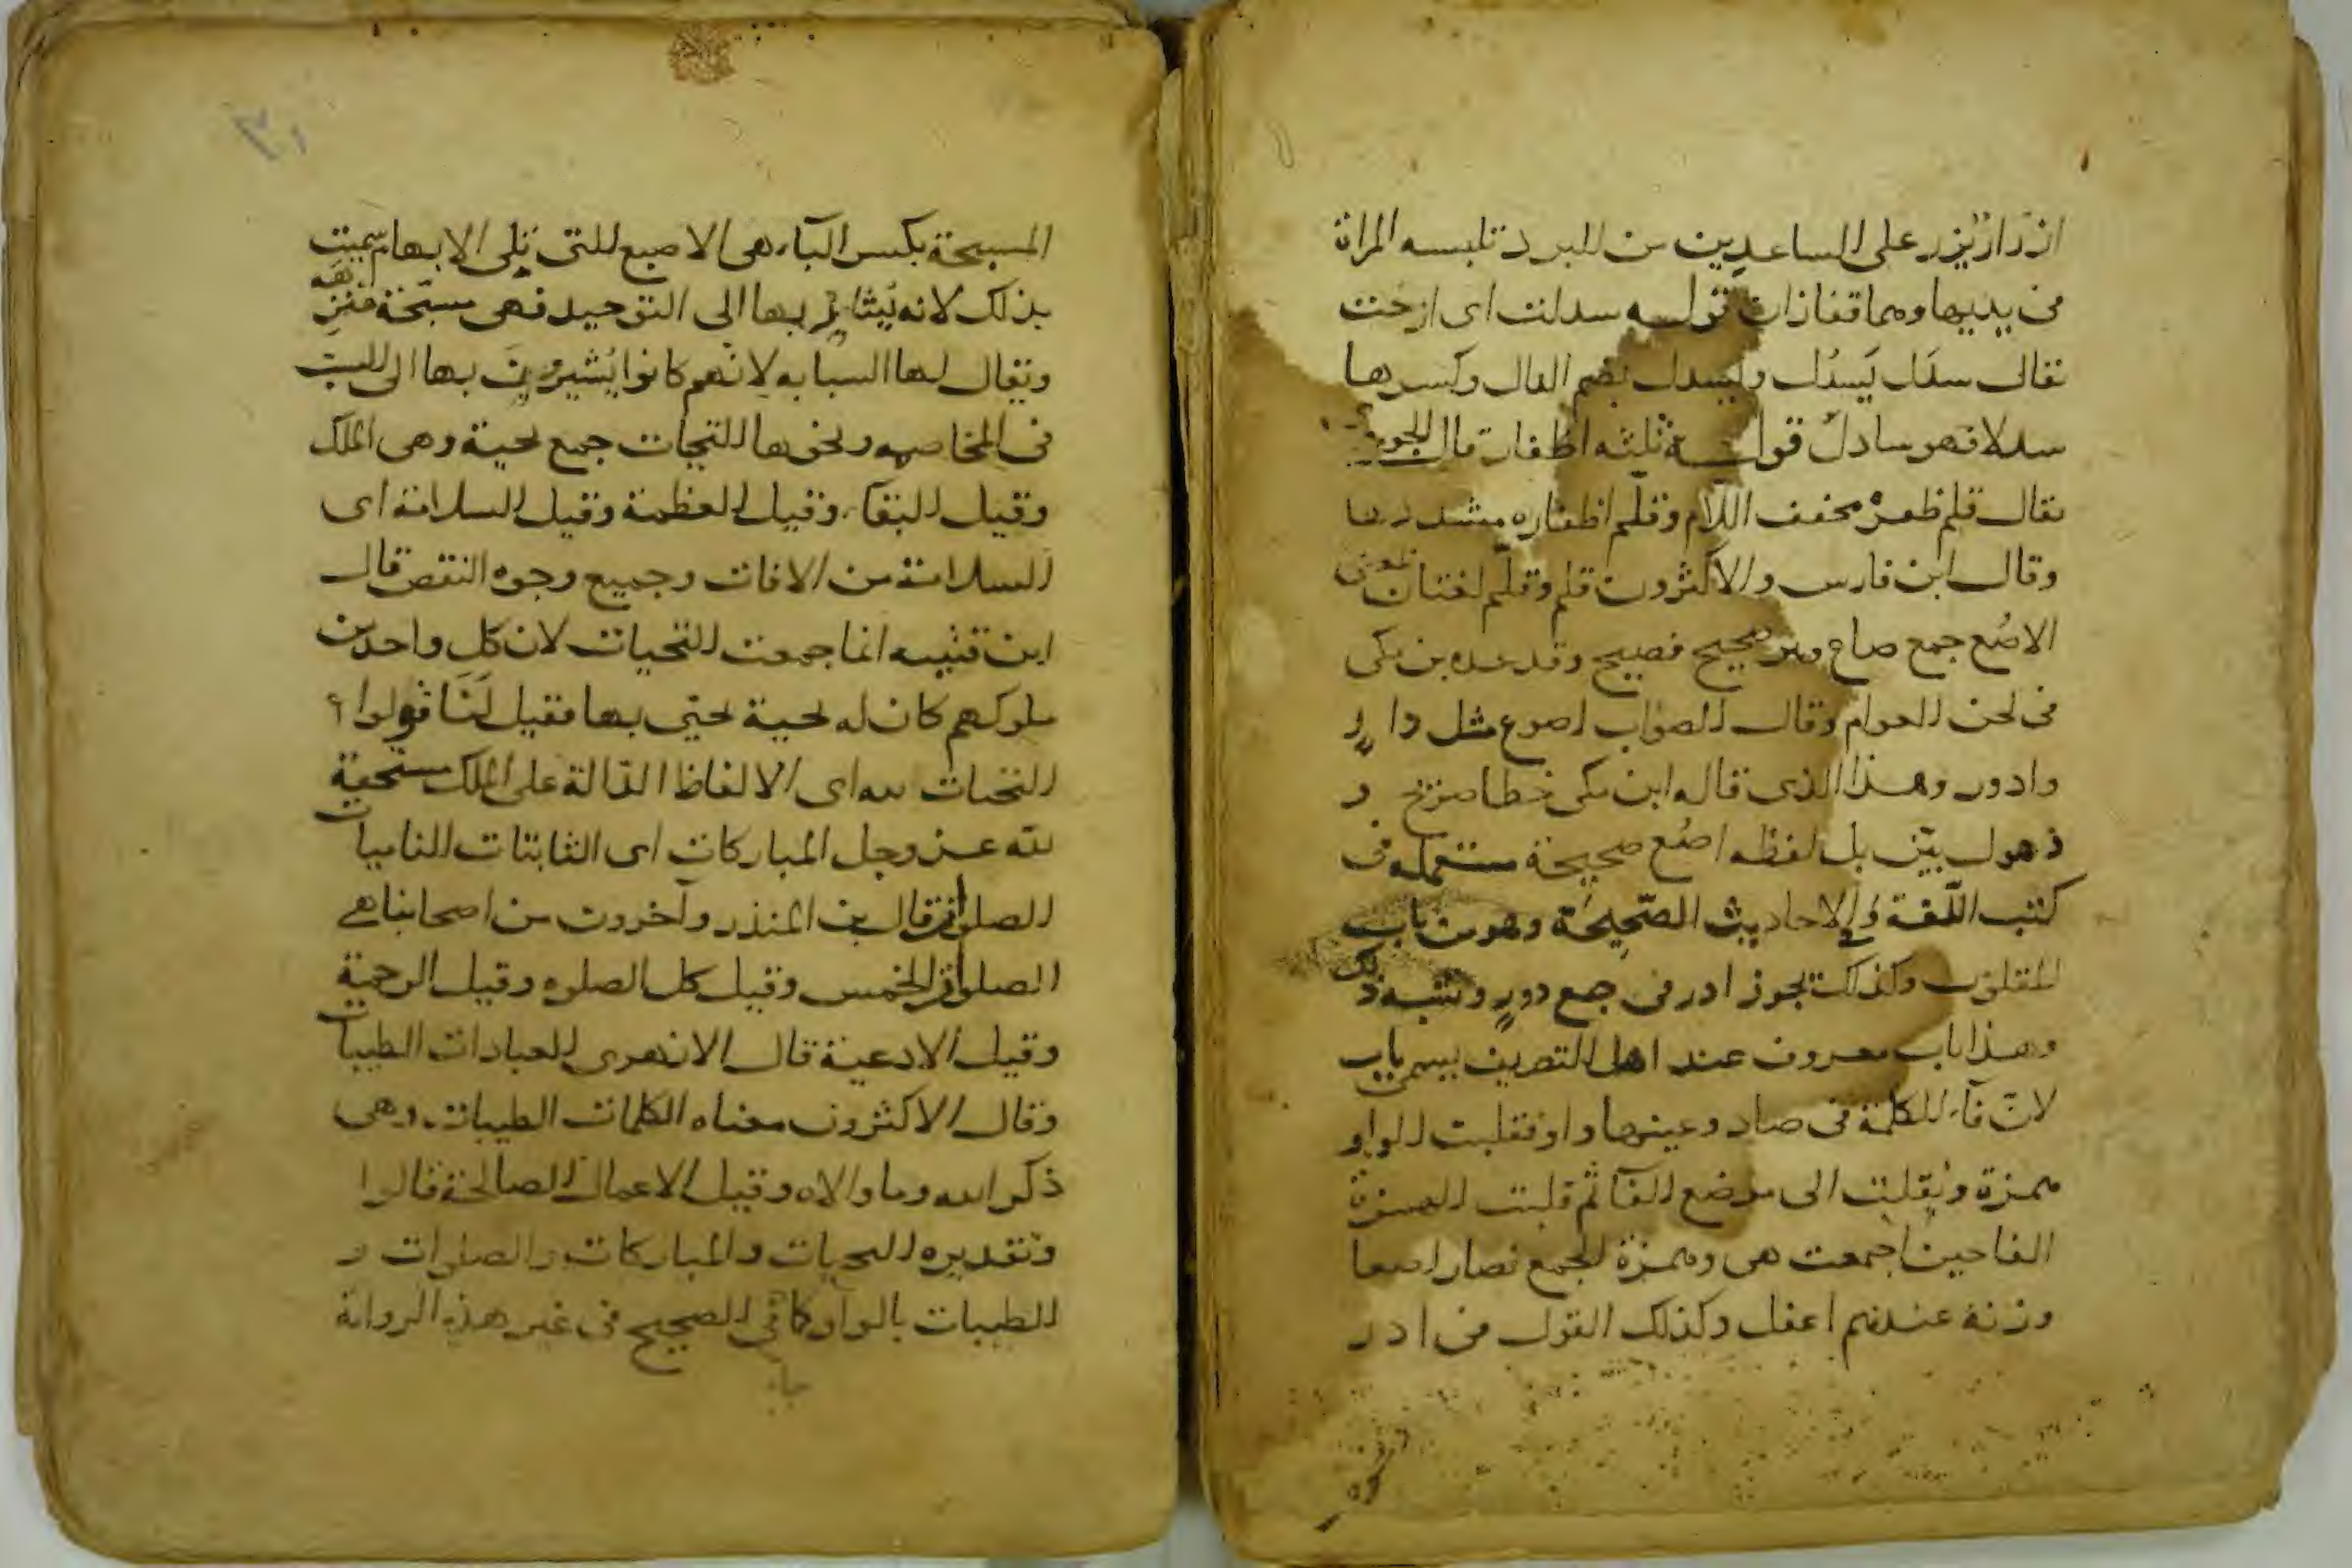 ازرار يزر على الساعدين من البرد تلبسه المراة
فى يديها وهما قفازان قوله سدلت اى ارخت
يقال سدل يسدل ويسدل بضم الدال وكسرها
سدلا فهو سادل قوله ثلثه اظفار قال الجوهرى
يقال قلم ظفره مخفف اللام وقلم اظفاره مشدد
وقال ابن فارس والاكثرون قلم وقلم لغتان
الاصع جمع صاع وهو صحيح فصيح وقد عده بن مكى
فى لحن العوام وقال الصواب اصوع مثل دار
وادور وهذا الذى قاله ابن مكى خطا صريح و
ذهول بين بل لفظه اصع صحيحة مستعمله فى
كتب اللغة والاحاديث الصحيحة وهو من باب
المقلوب وكذلك تجوز ادر فى جمع دور وشبه ذلك
وهذا باب معروف عند اهل التصريف يسمى باب
لان فآء الكلمة فى صاد وعينها واو فقلبت الواو
همزة ونقلت الى موضع الفآ ثم قلبت الهمزة
الفا حين اجمعت هى وهمزة الجمع فصار اصعا
وزنه عندهم اعفل وكذلك القول فى ادر
المسبحة بكسر البآء هى الاصبع التى تلى الابهام سميت
بذلك لانه يشار بها الى التوحيد فهى مسبحة منزهه
ويقال لها السبابه لانهم كانوا يشيرون بها الى السب
فى المخاصمه ونحوها التحيات جمع تحية وهى الملك
وقيل البقآء وقيل العظمة وقيل السلامة اى
السلامة من الافات وجميع وجوه النقص قال
ابن قتيبه انما جمعت التحيات لان كل واحد من
ملوكهم كان له تحية تحيى بها فقيل لنا قولوا
التحيات لله اى الالفاظ الدالة على الملك مستحقة
لله عز وجل المباركات اى الثابتات الناميات
الصلوات قال بن المنذر وآخرون من اصحابنا هى
الصلوات الخمس وقيل كل الصلوه وقيل الرحمة
وقيل الادعية قال الازهرى العبادات الطيبات
وقال الاكثرون معناه الكلمات الطيبات وهى
ذكر الله وما والاه وقيل الاعمال الصالحة قالوا
وتقديره التحيات والمباركات والصلوات و
الطيبات بالواو كما فى الصحيح فى غير هذه الرواية